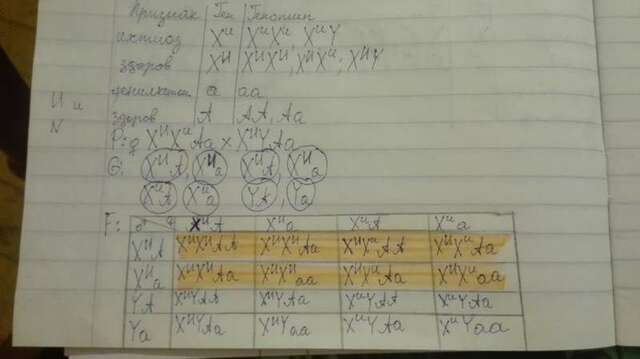 Признак | Ген | Генотип
ихтиоз Xᵘ XᵘXᵘ, XᵘY
здоров Xᴴ XᴴXᴴ, XᴴXᵘ, XᴴY
a aa
здоров A AA, Aa
И и
N
P: ♀ XᴴXᵘAa × XᴴYAa
G: XᴴA, Xᴴa XᴴA, Xᴴa
XᵘA Xᵘa YA, Ya
F: ♂ ♀ XᴴA Xᴴa XᵘA Xᵘa
XᴴA XᴴXᴴAA XᴴXᴴAa XᴴXᵘAA XᴴXᵘAa
Xᴴa XᴴXᴴAa XᴴXᴴaa XᴴXᵘAa XᴴXᵘaa
YA XᴴYAA XᴴYAa XᵘYAA XᵘYAa
Ya XᴴYAa XᴴYaa XᵘYAa XᵘYaa